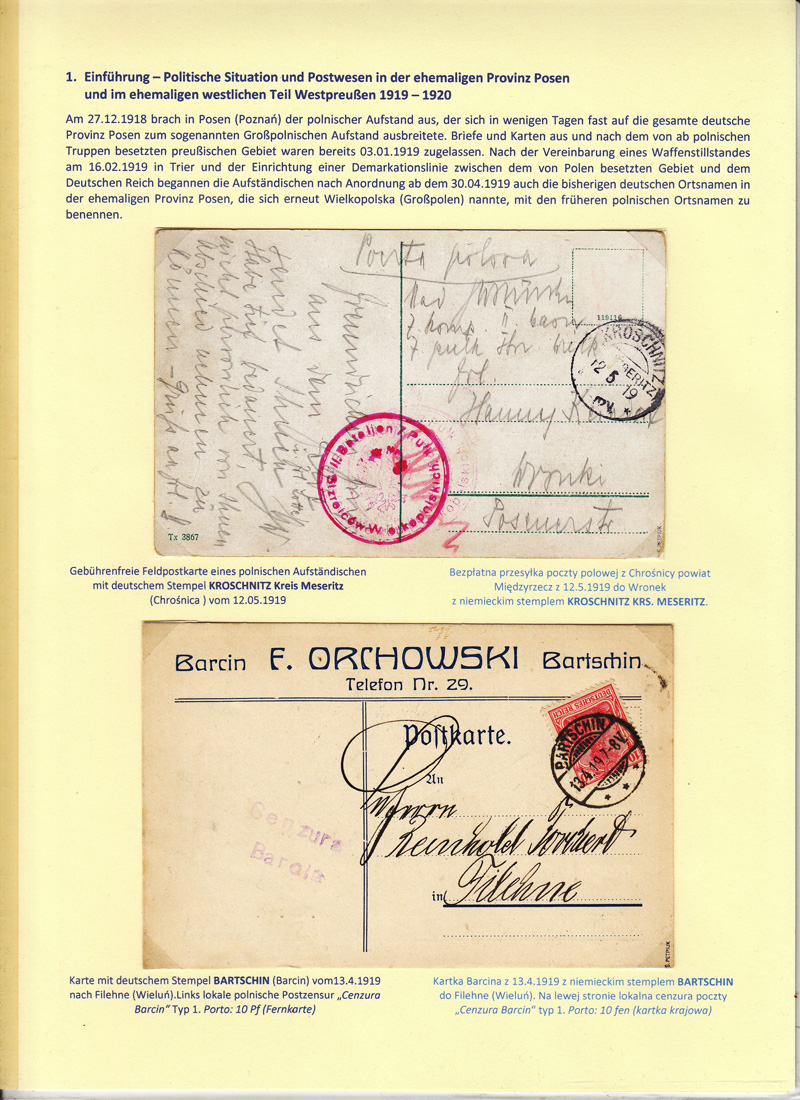 1. Einführung – Politische Situation und Postwesen in der ehemaligen Provinz Posen
und im ehemaligen westlichen Teil Westpreußen 1919 – 1920
Am 27.12.1918 brach in Posen (Poznań) der polnischer Aufstand aus, der sich in wenigen Tagen fast auf die gesamte deutsche
Provinz Posen zum sogenannten Großpolnischen Aufstand ausbreitete. Briefe und Karten aus und nach dem von ab polnischen
Truppen besetzten preußischen Gebiet waren bereits 03.01.1919 zugelassen. Nach der Vereinbarung eines Waffenstillstandes
am 16.02.1919 in Trier und der Einrichtung einer Demarkationslinie zwischen dem von Polen besetzten Gebiet und dem
Deutschen Reich begannen die Aufständischen nach Anordnung ab dem 30.04.1919 auch die bisherigen deutschen Ortsnamen in
der ehemaligen Provinz Posen, die sich erneut Wielkopolska (Großpolen) nannte, mit den früheren polnischen Ortsnamen zu
benennen.
Poczta polowa
7 komp. II. baon
7 pułk Str. Wielk.
Frl.
Hanny
Wronki
Posenerstr
aus dem
sendet Ihnen
Habe sehr bedauert,
nicht persönlich von Ihnen
Abschied nehmen zu
können - Gruß an Frl.
119116
KROSCHNITZ
MESERITZ
12 5 19
II. Bataljon 7 Pułk
Strzelców Wielkopolskich
Tx 3867
Gebührenfreie Feldpostkarte eines polnischen Aufständischen
mit deutschem Stempel KROSCHNITZ Kreis Meseritz
(Chrośnica ) vom 12.05.1919
Bezpłatna przesyłka poczty polowej z Chrośnicy powiat
Międzyrzecz z 12.5.1919 do Wronek
z niemieckim stemplem KROSCHNITZ KRS. MESERITZ.
Barcin F. ORCHOWSKI Bartschin
Telefon Nr. 29.
Postkarte.
DEUTSCHES REICH
10
BARTSCHIN
13.4.19.7-8V.
An
Herrn
Reinhold
in Filehne
Cenzura
Barcin
Karte mit deutschem Stempel BARTSCHIN (Barcin) vom13.4.1919
nach Filehne (Wieluń).Links lokale polnische Postzensur „Cenzura
Barcin“ Typ 1. Porto: 10 Pf (Fernkarte)
Kartka Barcina z 13.4.1919 z niemieckim stemplem BARTSCHIN
do Filehne (Wieluń). Na lewej stronie lokalna cenzura poczty
„Cenzura Barcin“ typ 1. Porto: 10 fen (kartka krajowa)